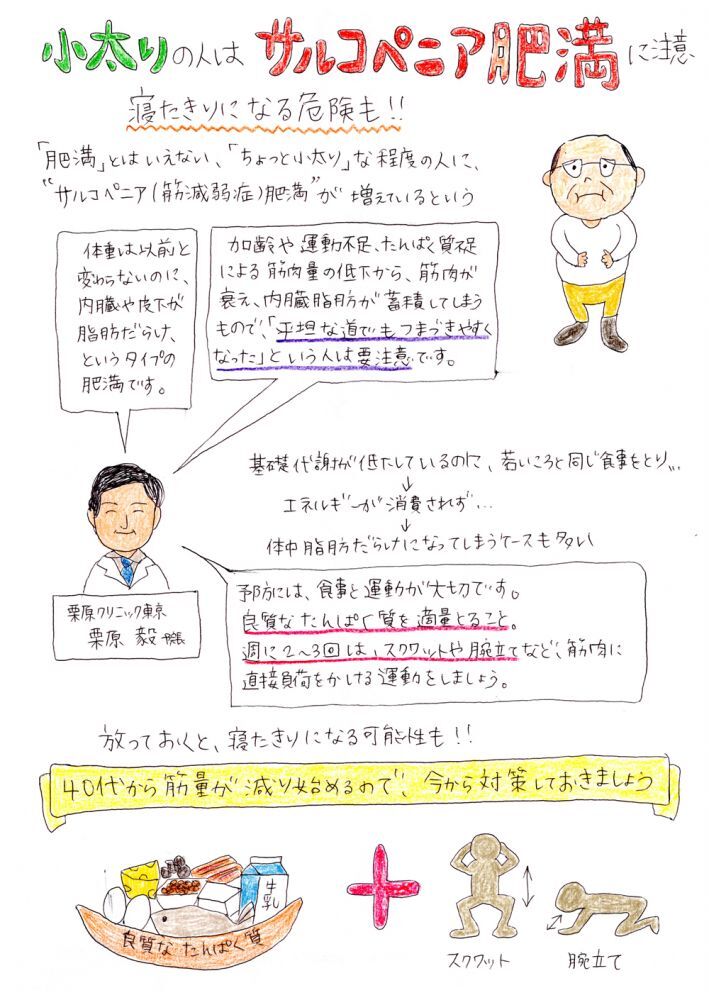 小太りの人は サルコペニア肥満に注意
寝たきりになる危険も!!
「肥満」とはいえない、「ちょっと小太り」な程度の人に、
"サルコペニア(筋減弱症)肥満"が 増えているという
体重は以前と
変わらないのに、
内臓や皮下が
脂肪だらけ、
というタイプの
肥満です。
加齢や運動不足、たんぱく質不足
による筋肉量の低下から、筋肉が
衰え、内臓脂肪が蓄積してしまう
もので、「平坦な道でもつまづきやすく
なった」という人は要注意です。
基礎代謝が低下しているのに、若いころと同じ食事をとり...
↓
エネルギーが消費されず...
↓
体中脂肪だらけになってしまうケースも多い
栗原クリニック東京
栗原 毅 院長
予防には、食事と運動が大切です。
良質なたんぱく質を適量とること。
週に2~3回は、スクワットや腕立てなど、筋肉に
直接負荷をかける運動をしましょう。
放っておくと、寝たきりになる可能性も!!
40代から筋量が減り始めるので、今から対策しておきましょう
牛乳
+
良質な たんぱく質
スクワット
腕立て